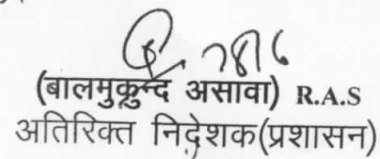 (बालमुकुन्द असावा) R.A.S
अतिरिक्त निदेशक(प्रशासन)